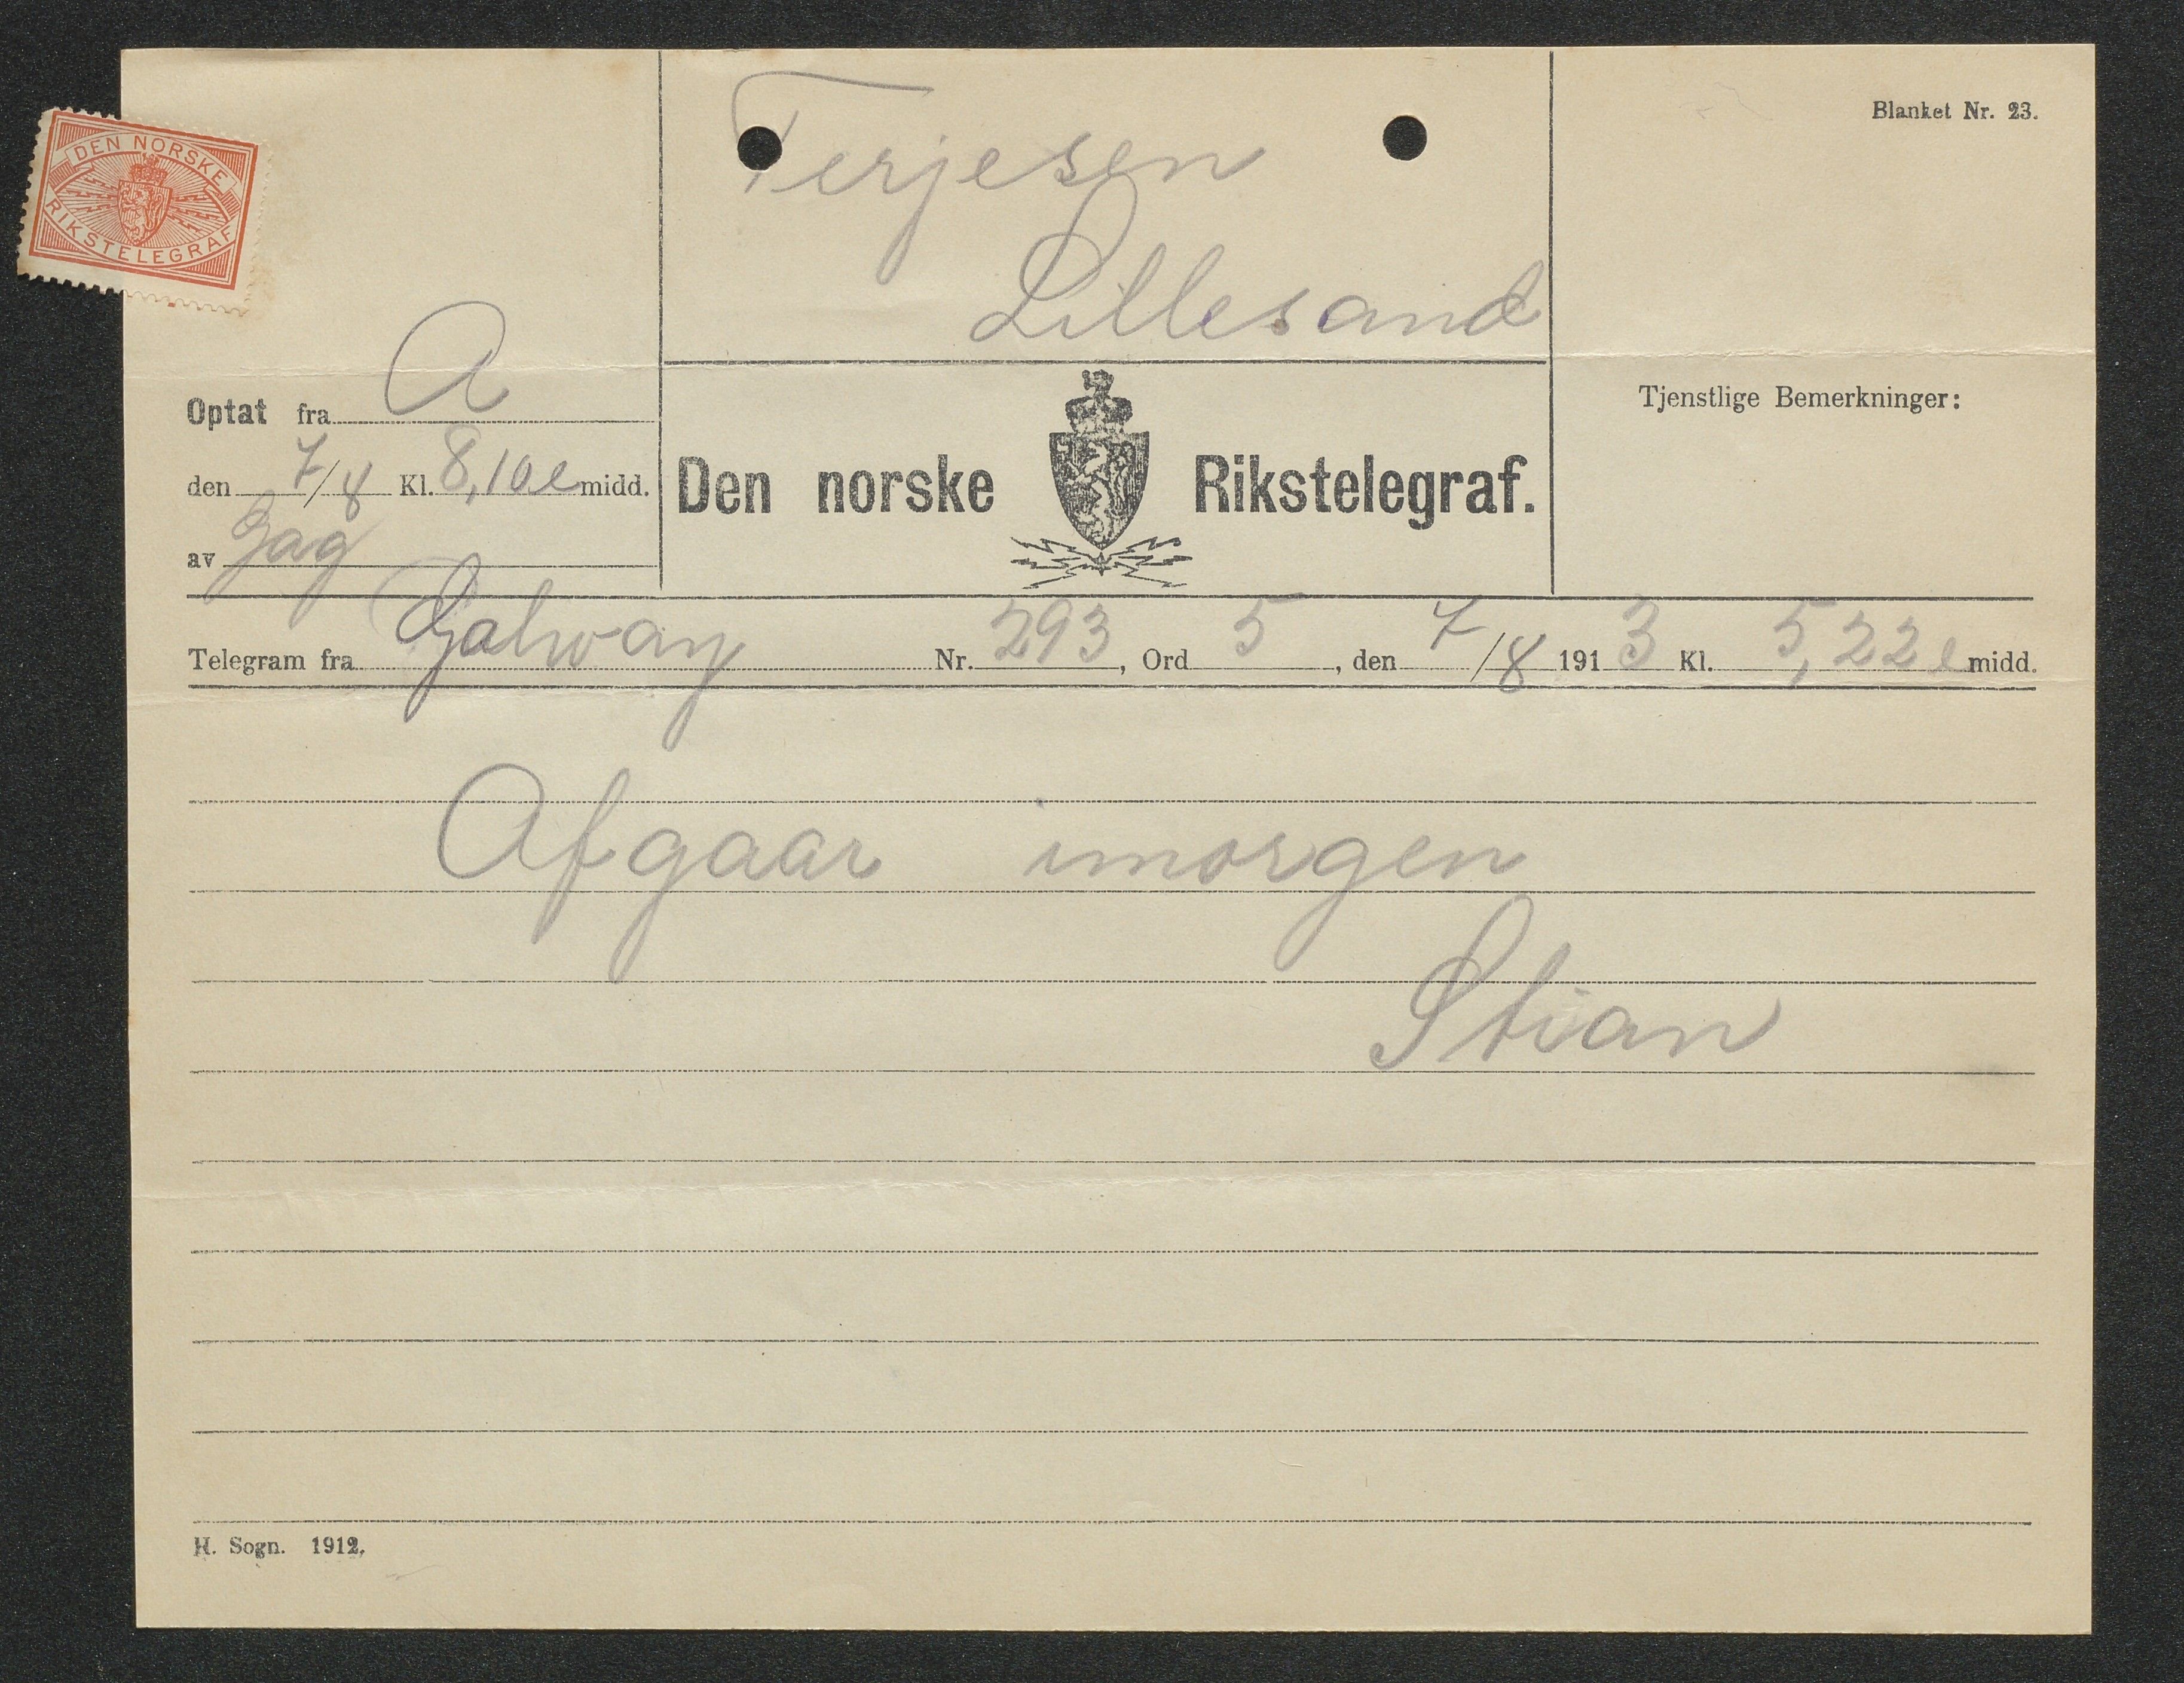 DEN NORSKE
RIKSTELEGRAF
Terjesen
Lillesand
Blanket Nr. 23.
Optat fra A
den 7/8 Kl. 8,10 e midd.
av
Den norske Rikstelegraf.
Tjenstlige Bemerkninger:
Telegram fra Galway Nr. 293, Ord 5, den 7/8 1913 Kl. 5,22 e midd.
Afgaar imorgen
Stian
H. Sogn. 1912.